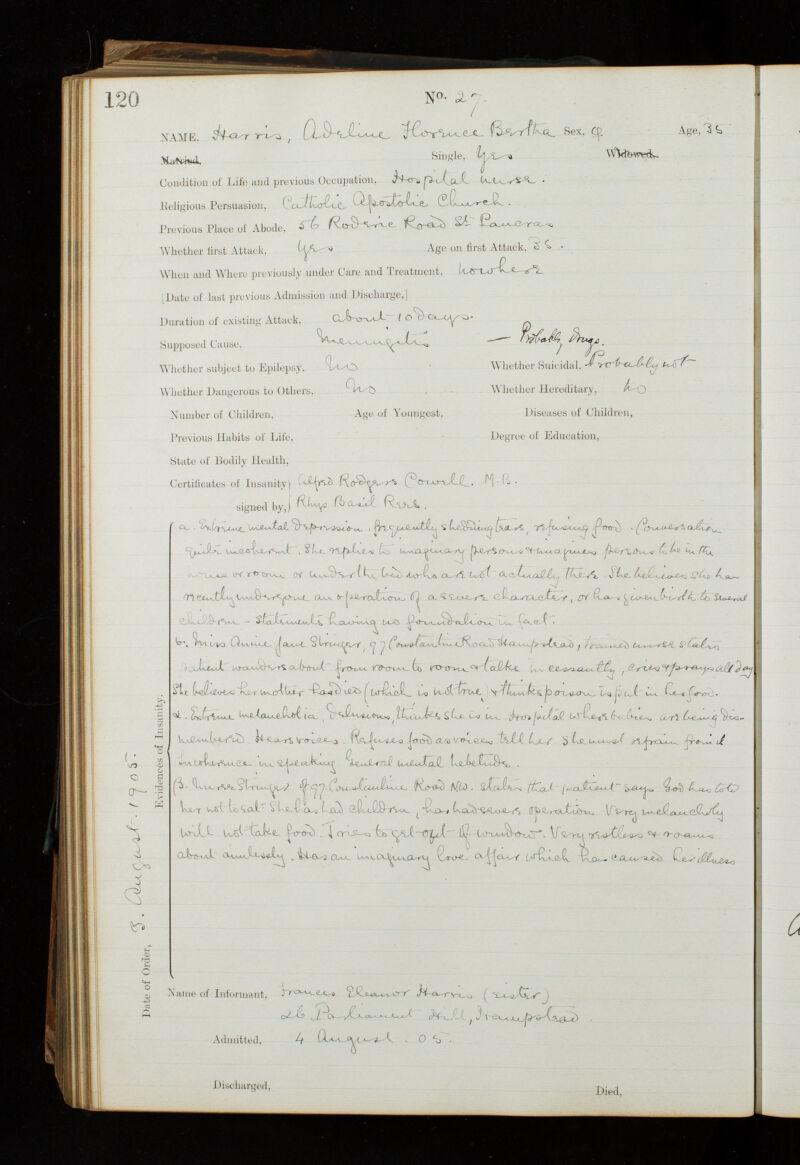 120
No. 27.
NAME, Harris, Adeline Florence Bertha Sex, F. Age, 35
Married, Single, Yes Widowed,
Condition of Life and previous Occupation, Hospital nurse.
Religious Persuasion, Catholic Apostolic Church.
Previous Place of Abode, 56 Roderic Road St Pancras
Whether first Attack, Yes Age on first Attack, 35.
When and Where previously under Care and Treatment, nowhere
[Date of last previous Admission and Discharge,]
Duration of existing Attack, about 10 days.
Supposed Cause, Meningitis — Probably Drugs.
Whether subject to Epilepsy, No Whether Suicidal, Probably not
Whether Dangerous to Others, No Whether Hereditary, No
Number of Children, Age of Youngest, Diseases of Children,
Previous Habits of Life, Degree of Education,
State of Bodily Health,
Certificates of Insanity) Alfred Rodgers M.B.
signed by,) Rhys Basil
a. Extreme mental depression. frequently shedding tears, refusing food. Conversation
quite incoherent. She replies to imaginary persons & imagines persons to be in the
house or room or under the bed who are not actually there. She believes she has
recently undergone an operation of a severe character, or has given birth to several
children - Statements having no foundation in fact.
b. Miss Annie Jane Stringer, 97 Constantine Road Hampstead, trained nurse states
patient wanders about from room to room & talks incessantly, cries & prays all day
She believes her mother has died (which is not true) & thinks poison is put in her food.
a. Extreme melancholia, Delusions, thinks she is in Hospital where babies are being dis-
membered. Hears voices. Refuses food as voices tell her she must refrain from it
Incoherence in speaking General mental hebetude.
B. Nurse Stringer of 97 Constantine Road NW. states that patient says God has told
her not to eat She has had children, & has had severe operation. Very melancholy
will not take food. Tries to get out of window. Very restless & roams
about aimlessly. Has an imaginary love affair which has caused her illness
Evidences of Insanity.
Date of Order, 3. August. 1905.
Name of Informant, Frances Eleanor Harris (sister)
26 Parliament Hill, Hampstead.
Admitted, 4 August. 05.
Discharged, Died,